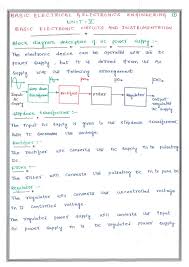 BASIC ELECTRICAL & ELECTRONICS ENGINEERING ①
UNIT-V
BASIC ELECTRONIC CIRCUITS AND INSTRUMENTATION
Block diagram description of DC power supply:-
The electronic device can be operated with an DC
power supply, but it is derived from an AC
supply with following arrangement
Input
Rectifier
Filter
Output
Regulated
DC supply
Stepdown transformer:-
The input AC supply is given to the stepdown transformer
Rectifier:-
The rectifier will converts AC supply to pulsating
DC
Filter:-
The filter will converts pulsating DC to pure DC
Regulator:-
The regulator will converts the uncontrolled voltage
to controlled voltage.
The regulated power supply will converts the input
AC power supply to DC regulated power supply